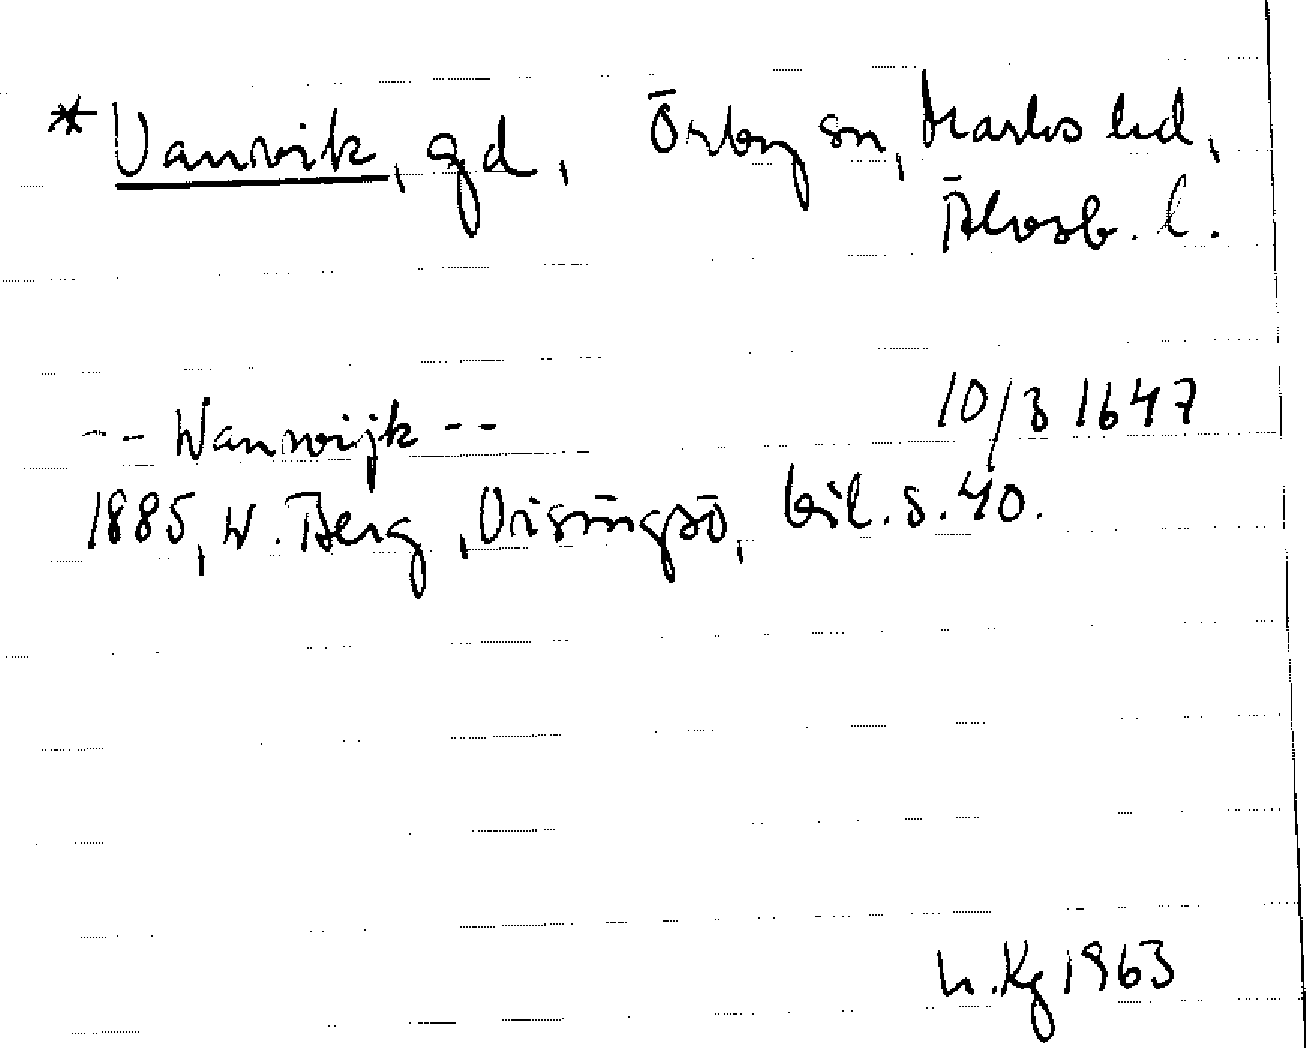 * Vanvik, gd, Örby sn, Marks hd,
Älvsb. l.
-- Wanwijk -- 10/3 1647
1885, W. Berg, Visingsö, bil. s. 40.
h. Kg 1963